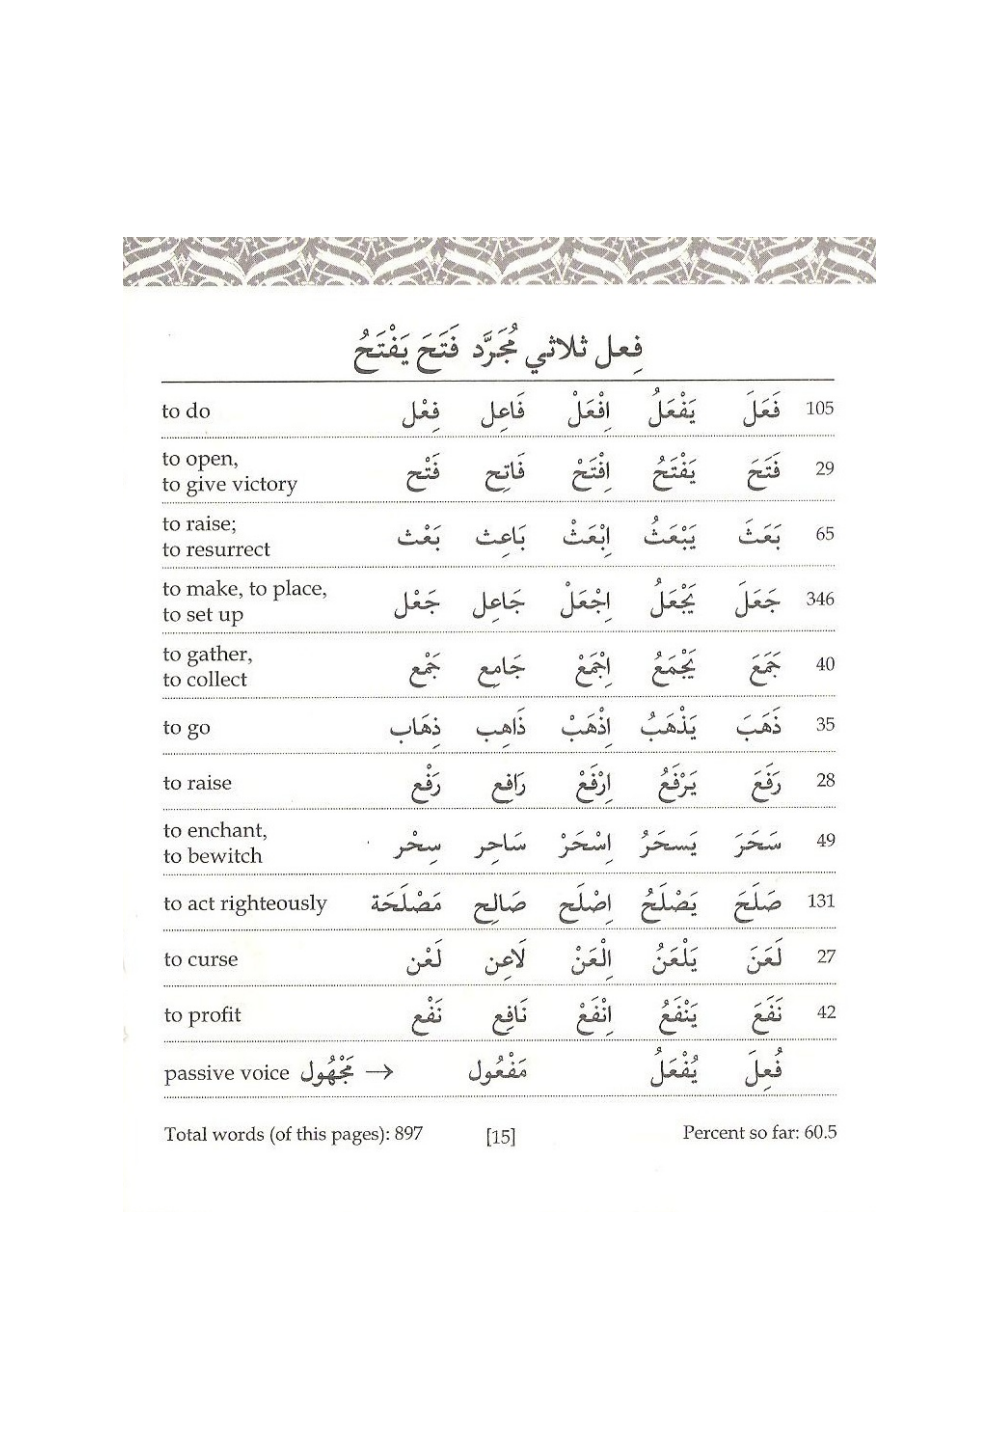 فِعل ثلاثي مُجَرَّد فَتَحَ يَفْتَحُ
105 فَعَلَ يَفْعَلُ اِفْعَلْ فَاعِل فِعْل to do
29 فَتَحَ يَفْتَحُ اِفْتَحْ فَاتِح فَتْح to open,
to give victory
65 بَعَثَ يَبْعَثُ اِبْعَثْ بَاعِث بَعْث to raise;
to resurrect
346 جَعَلَ يَجْعَلُ اِجْعَلْ جَاعِل جَعْل to make, to place,
to set up
40 جَمَعَ يَجْمَعُ اِجْمَعْ جَامِع جَمْع to gather,
to collect
35 ذَهَبَ يَذْهَبُ اِذْهَبْ ذَاهِب ذِهَاب to go
28 رَفَعَ يَرْفَعُ اِرْفَعْ رَافِع رَفْع to raise
49 سَحَرَ يَسحَرُ اِسْحَرْ سَاحِر سِحْر to enchant,
to bewitch
131 صَلَحَ يَصْلَحُ اِصْلَح صَالِح مَصْلَحَة to act righteously
27 لَعَنَ يَلْعَنُ اِلْعَنْ لَاعِن لَعْن to curse
42 نَفَعَ يَنْفَعُ اِنْفَعْ نَافِع نَفْع to profit
فُعِلَ يُفْعَلُ مَفْعُول ← مَجْهُول passive voice
Total words (of this pages): 897 [15] Percent so far: 60.5